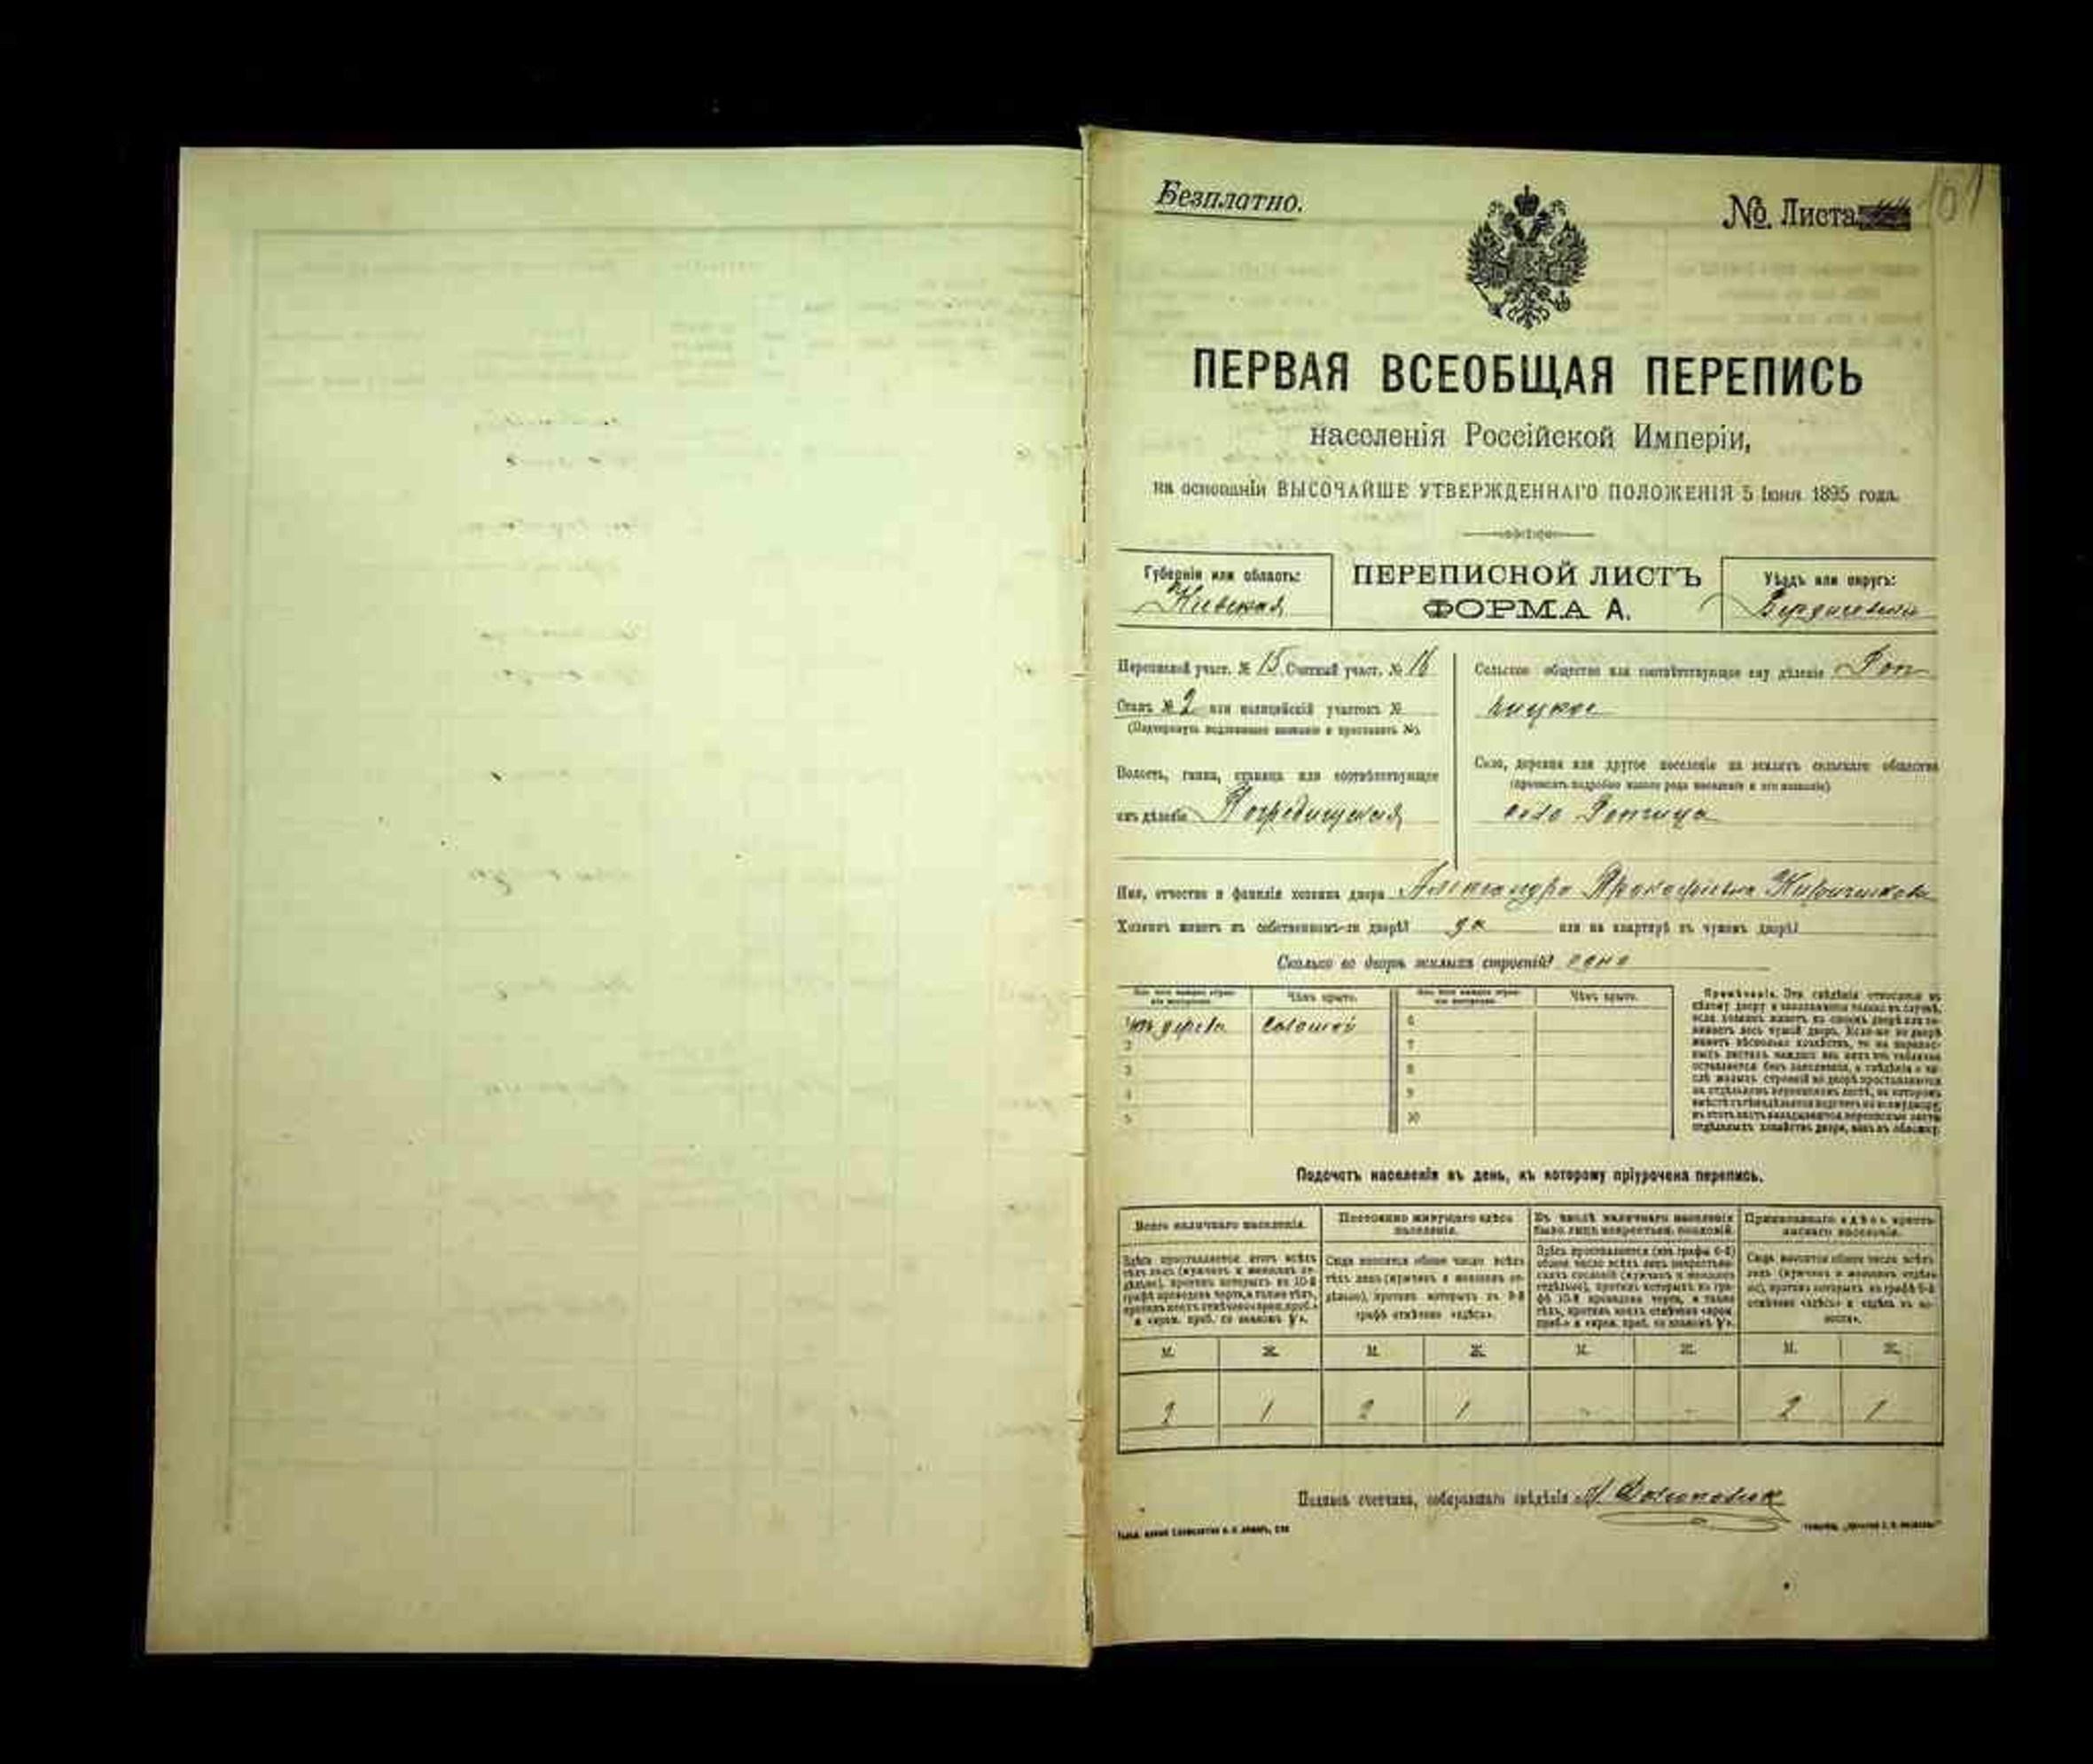 Безплатно.
№ Листа 101
ПЕРВАЯ ВСЕОБЩАЯ ПЕРЕПИСЬ
населенія Россійской Имперіи,
на основаніи ВЫСОЧАЙШЕ УТВЕРЖДЕННАГО ПОЛОЖЕНІЯ 5 Іюня 1895 года.
Губернія или область:
Кіевская
ПЕРЕПИСНОЙ ЛИСТЪ
ФОРМА А.
Уѣздъ или округъ:
Бердичевскій
Переписной участ. № 15 Счетный участ. № 16
Станъ № 2 или полицейскій участокъ №
(Подчеркнуть подлежащее названіе и проставить №).
Волость, гмина, станица или соотвѣтствующее
имъ дѣленіе Погребищская
Сельское общество или соотвѣтствующее ему дѣленіе
Село, деревня или другое поселеніе на земляхъ сельскаго общества
(прописать подробно какого рода поселеніе и его названіе)
село
Имя, отчество и фамилія хозяина двора Александра Прокофіевна
Хозяинъ живетъ въ собственномъ-ли дворѣ? да или на квартирѣ въ чужомъ дворѣ?
Сколько во дворѣ жилыхъ строеній? одно
Изъ чего каждое строеніе выстроено. Чѣмъ крыто. Изъ чего каждое строеніе выстроено. Чѣмъ крыто.
1 изъ дерева соломой 6
2 7
3 8
4 9
5 10
Примѣчаніе. Эти свѣдѣнія относятся къ
цѣлому двору и заполняются только въ случаѣ,
если хозяинъ живетъ въ своемъ дворѣ или занимаетъ весь чужой дворъ. Если-же во дворѣ
живетъ нѣсколько хозяйствъ, то на переписныхъ листахъ каждаго изъ нихъ эта табличка
оставляется безъ заполненія, а свѣдѣнія о числѣ жилыхъ строеній во дворѣ проставляются
на отдѣльномъ переписномъ листѣ, на которомъ
Подсчетъ населенія въ день, къ которому пріурочена перепись.
Всего наличнаго населенія.
Здѣсь проставляется итогъ всѣхъ
тѣхъ лицъ (мужчинъ и женщинъ отдѣльно), противъ которыхъ въ 10-й
графѣ проведена черта, а также тѣхъ,
Постоянно живущаго здѣсь
населенія.
Сюда вносится общее число всѣхъ
тѣхъ лицъ (мужчинъ и женщинъ отдѣльно), противъ которыхъ въ 9-й
графѣ отмѣчено «здѣсь».
Въ числѣ наличнаго населенія
было лицъ некрестьян. сословій.
Здѣсь проставляется (изъ графы 6-й)
общее число всѣхъ лицъ некрестьянскихъ сословій (мужчинъ и женщинъ
отдѣльно), противъ которыхъ въ графѣ 10-й проведена черта, а также
Приписаннаго здѣсь крестьянскаго населенія.
Сюда вносится общее число всѣхъ
лицъ (мужчинъ и женщинъ отдѣльно), противъ которыхъ въ графѣ 8-й
отмѣчено «здѣсь» и «здѣсь въ волости».
М. Ж. М. Ж. М. Ж. М. Ж.
2 1 2 1 - - 2 1
Подпись счетчика, собиравшаго свѣдѣнія